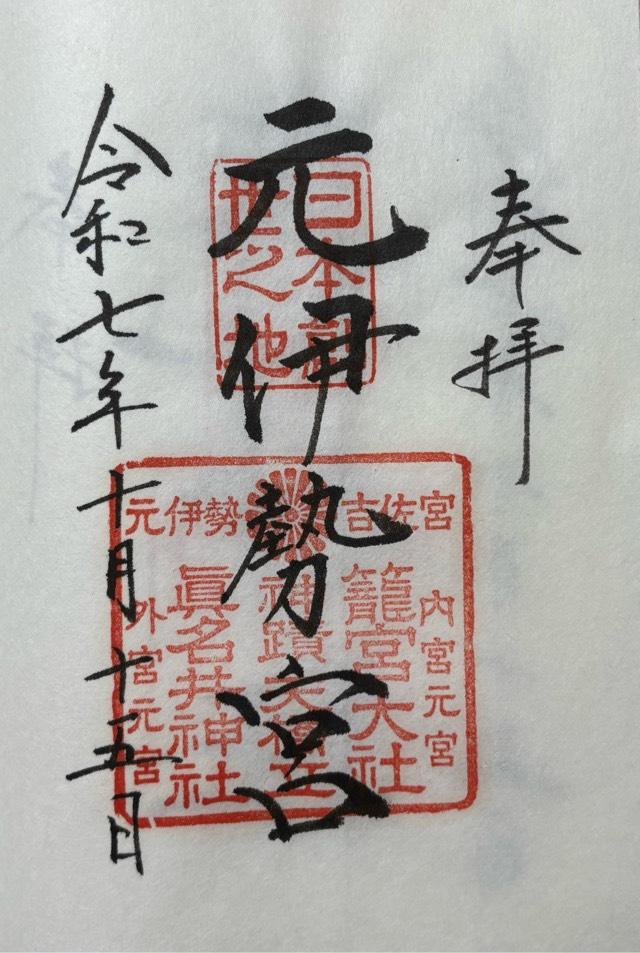 奉拝
日本創
世之地
元伊勢宮
元伊勢 吉佐宮
内宮元宮
籠宮大社
神蹟天橋立
眞名井神社
外宮元宮
令和七年十月十五日